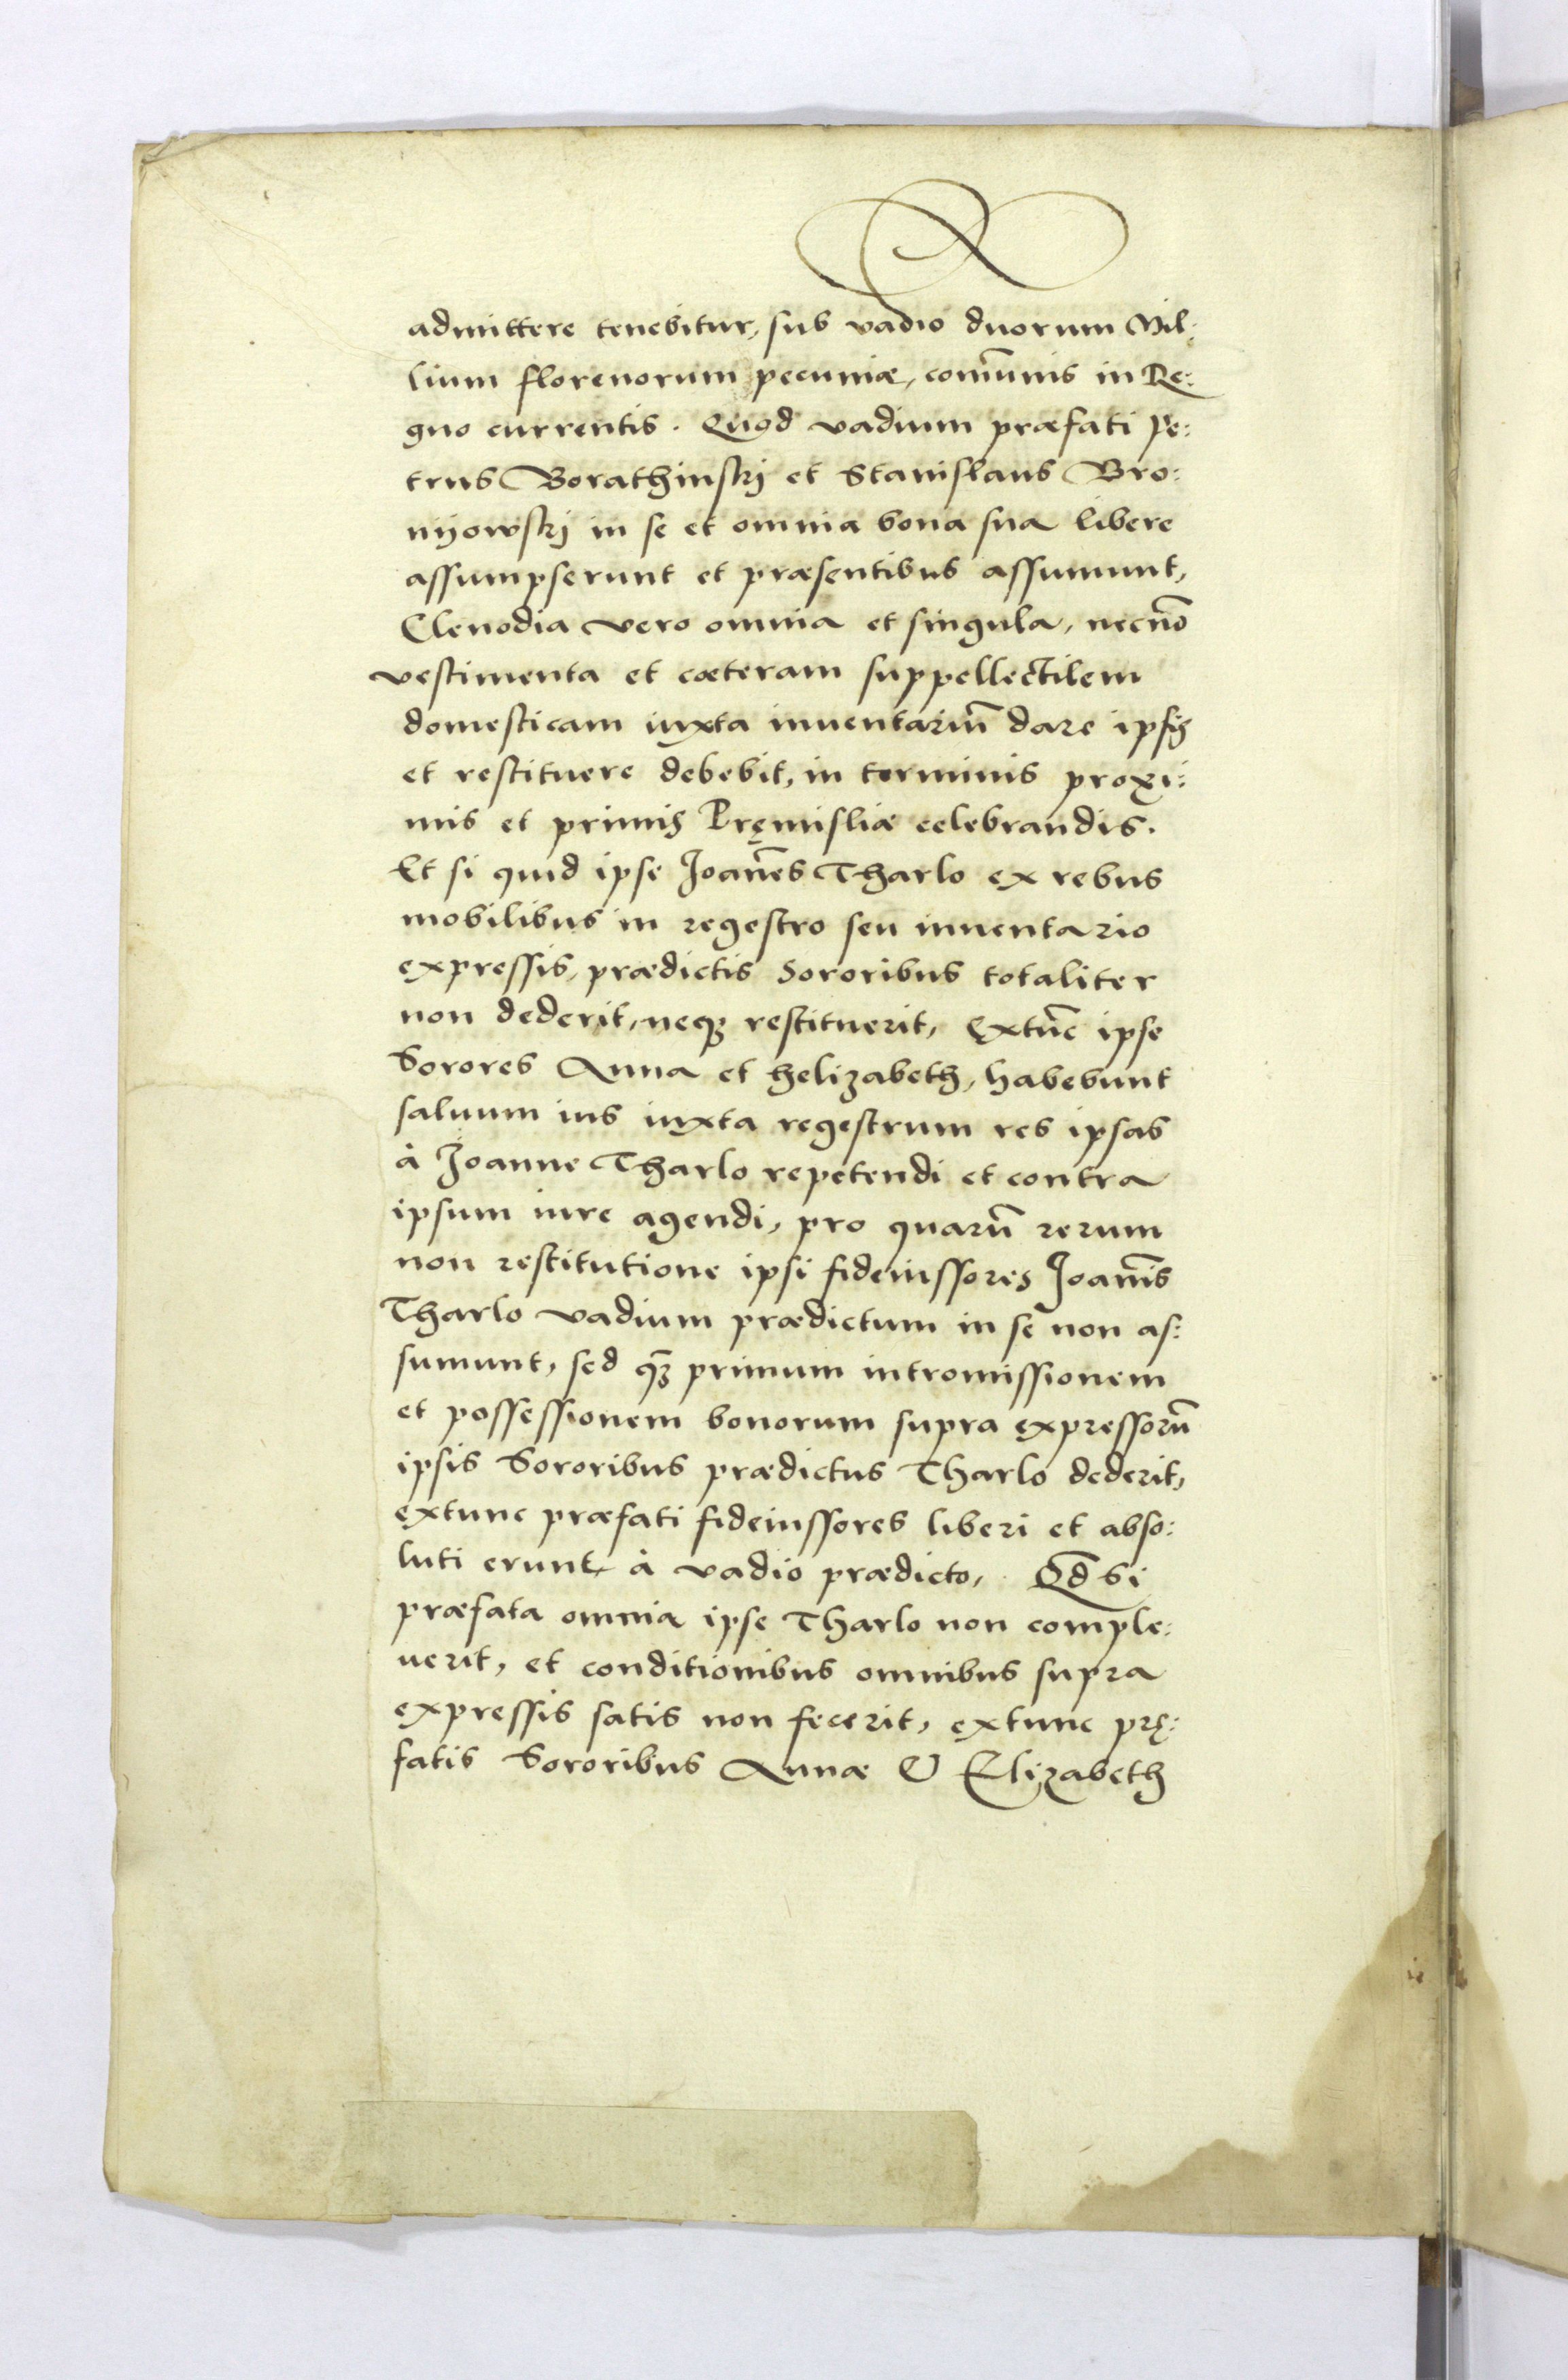 admittere tenebitur, sub vadio duorum Mil:
lium florenorum pecuniæ, com̄unis in Re:
gno currentis. Quod vadium præfati Pe:
trus Borathinskj et Stanislaus Bro:
nijowskj in se et omnia bona sua libere
assumpserunt et præsentibus assumunt,
Clenodia vero omnia et singula, necnō
vestimenta et cæteram suppellectilem
domesticam iuxta inuentariū dare ipsis
et restituere debebit, in terminis proxi:
mis et primis Pręmisliæ celebrandis.
Et si quid ipse Joan̄es Tharlo ex rebus
mobilibus in regestro seu inuentario
expressis, prædictis Sororibus totaliter
non dederit, neqꝫ restituerit, extūc ipse
Sorores Anna et helizabeth, habebunt
saluum ius iuxta regestrum res ipsas
à Joanne Tharlo repetendi et contra
ipsum iure agendi, pro quarū rerum
non restitutione ipsi fideiussores Joan̄is
Tharlo vadium prædictum in se non as:
sumunt, sed qꝫ̄ primum intromissionem
et possessionem bonorum supra expressorū
ipsis Sororibus prædictus Tharlo dederit,
extunc præfati fideiussores liberi et abso:
luti erunt, à vadio prædicto, Qd̄ si
præfata omnia ipse Tharlo non comple:
uerit, et conditionibus omnibus supra
expressis satis non fecerit, extunc prę:
fatis Sororibus Annæ & Elizabeth